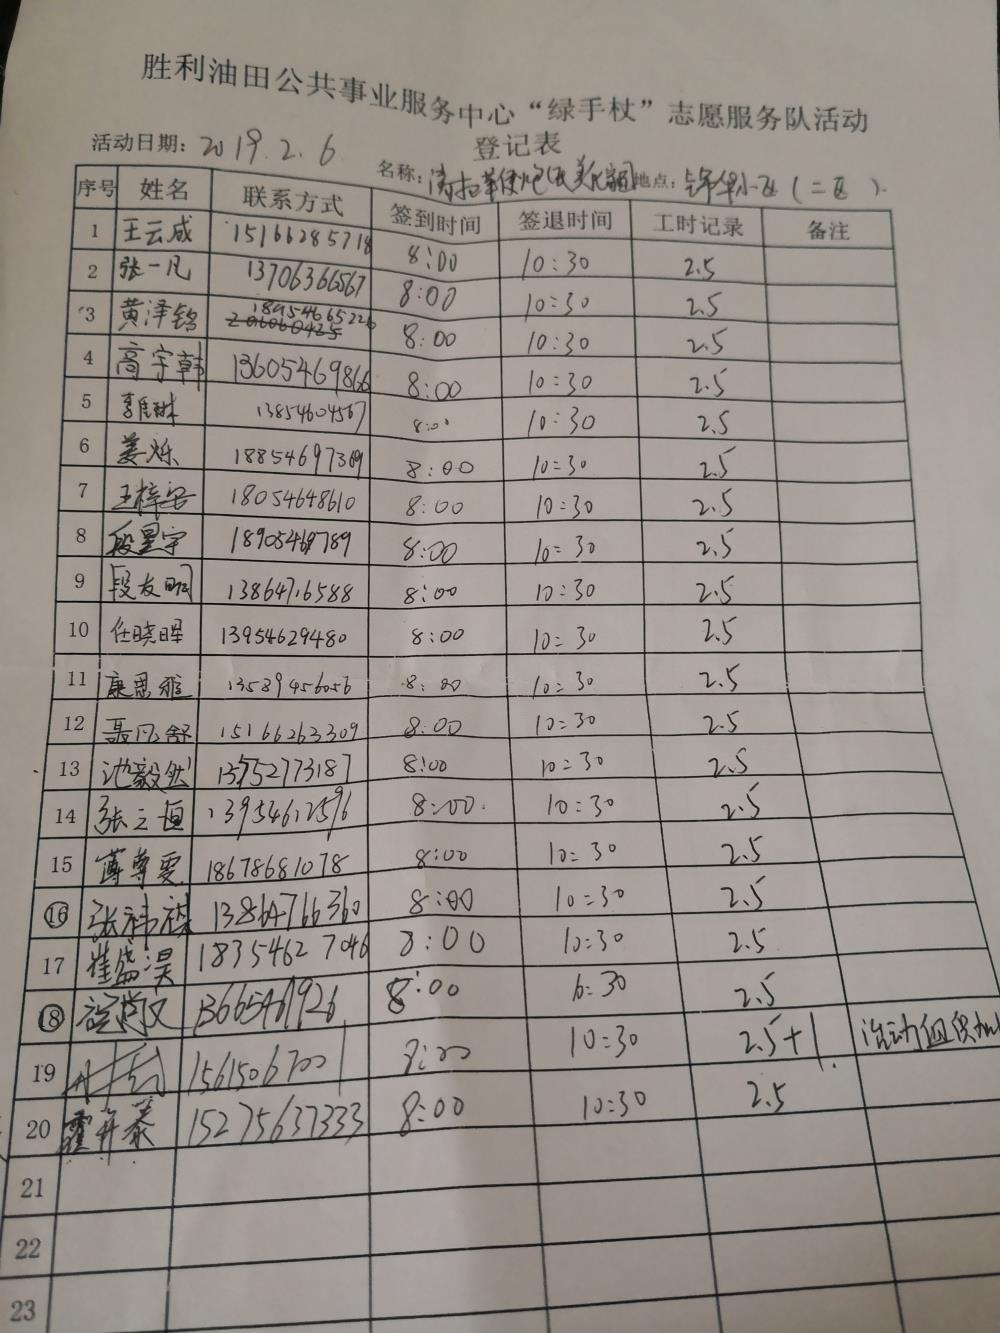 胜利油田公共事业服务中心“绿手杖”志愿服务队活动
登记表
活动日期：2019.2.6 名称：清扫鞭炮 地点：锦华小区（二区）.
序号 姓名 联系方式 签到时间 签退时间 工时记录 备注
1 王云成 15166285718 8:00 10:30 2.5
2 张一凡 13706366567 8:00 10:30 2.5
3 黄泽铭 18954665226 8:00 10:30 2.5
4 高宇韩 13605469866 8:00 10:30 2.5
5 13854604567 8:00 10:30 2.5
6 姜烁 18854697309 8:00 10:30 2.5
7 王梓 18054648610 8:00 10:30 2.5
8 段星宇 18905468789 8:00 10:30 2.5
9 段友明 13864716588 8:00 10:30 2.5
10 任晓晖 13954629480 8:00 10:30 2.5
11 康思雅 13589456056 8:00 10:30 2.5
12 聂凡舒 15166263309 8:00 10:30 2.5
13 池毅然 13752773187 8:00 10:30 2.5
14 张之恒 13954612596 8:00 10:30 2.5
15 薄尊雯 18678681078 8:00 10:30 2.5
16 张祎祺 13864766360 8:00 10:30 2.5
17 崔盛昊 18354627046 8:00 10:30 2.5
18 13665461926 8:00 6:30 2.5
19 15615067001 8:00 10:30 2.5+1 活动组织
20 霍弈蓁 15275637333 8:00 10:30 2.5
21
22
23